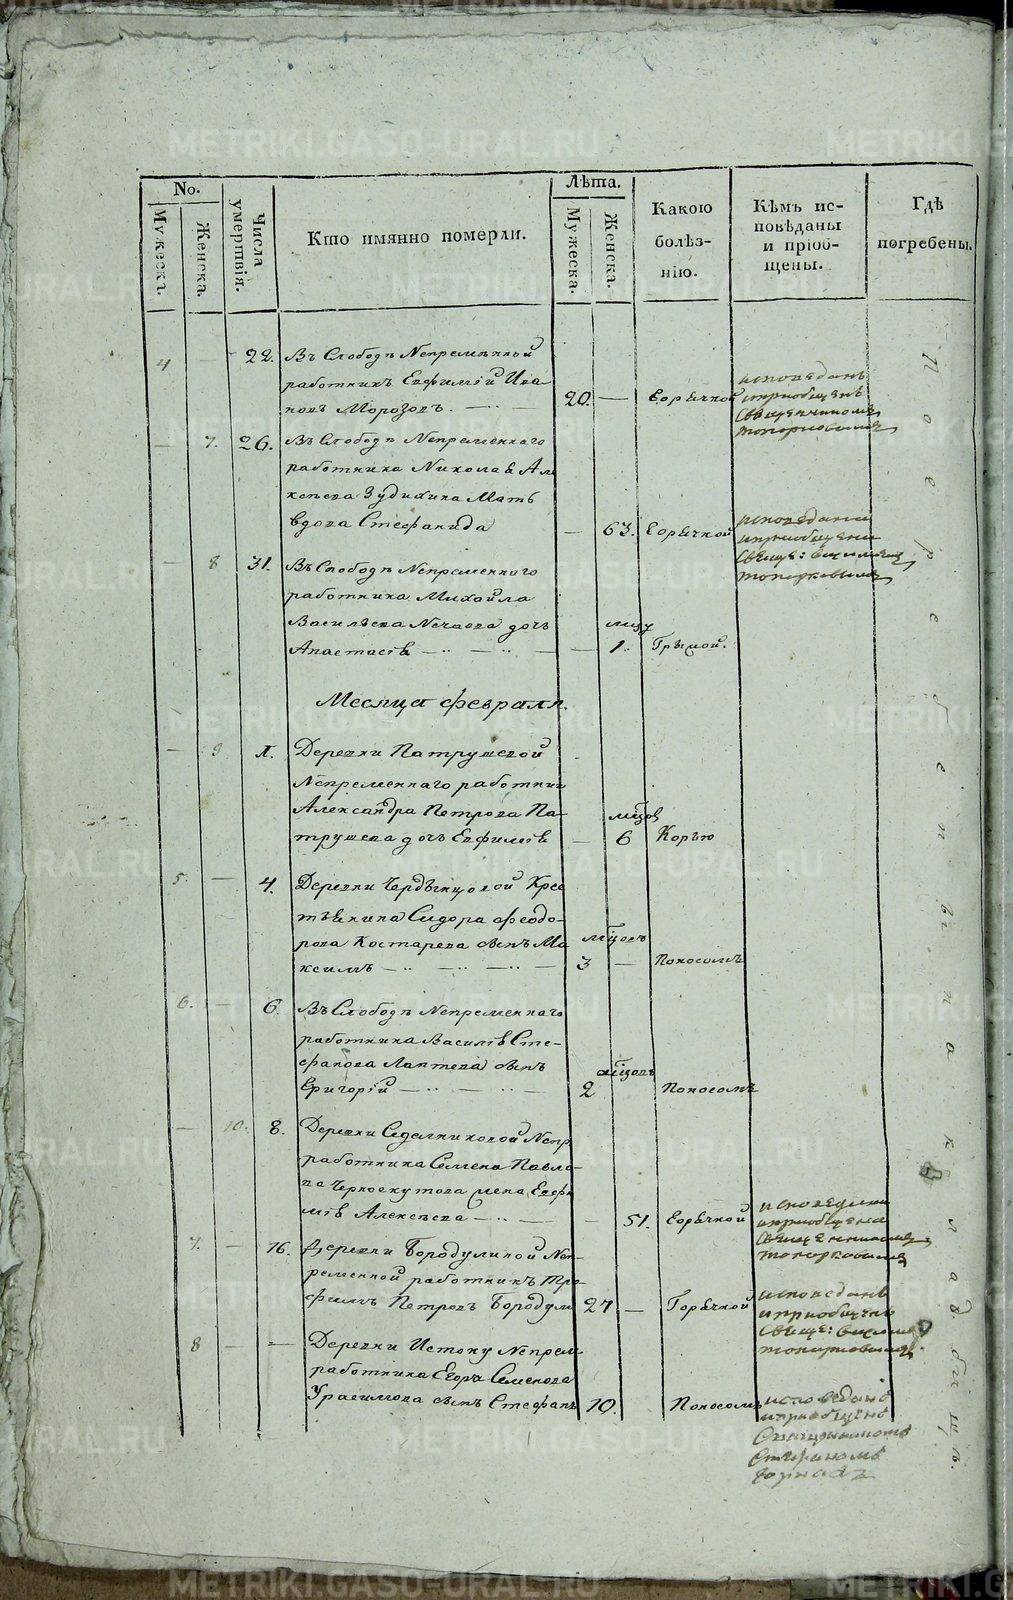 No.
Мужеска.
Женска.
Числа умертвія.
Кто имянно померли.
Лѣта.
Мужеска.
Женска.
Какою болѣзнію.
Кѣмъ исповѣданы и пріобщены.
Гдѣ погребены.
4 — 22. Въ Слободѣ Непремѣнной
работникъ Евфимій Ива-
новъ Морозовъ. — 20. — Горячкой
исповеданъ
и приобщенъ
Священникомъ
топорковымъ
— 7. 26. Въ Слободѣ Непременнаго
работника Николая Але
ксѣева Зудихина Мать
вдова Стефанида — 63. Горячкой
исповедана
и приобщена
Свяще:
топорковымъ
— 8 31. Въ Слободѣ Непременнаго
работника Михайла
Васильева Нечаева дочь
Анастасія — — 1. Грыжой.
Месяца февраля.
— 9 Деревни Патрушевой
Непременнаго работника
Александра Петрова Па-
трушева дочь Евфимія — 6 Корью
мцов
5. — 4. Деревни Чердынцовой Крес
тьянина Сидора Феодо-
рова Костарева сынъ Ма
ксимъ — 3 — Поносомъ
мцовъ
6. — 6. Въ Слободѣ Непременнаго
работника Василія Сте-
фанова Лаптева сынъ
Григорій — 2 Поносомъ
мцовъ
— 10. 8. Деревни Седельниковой Непр
работника Семена Павло
ва Черноскутова жена Евфи
мія Алексѣева — — 51. Горячкой
исповедана
и приобщена
Священникомъ
топорковымъ
7. — 16. Деревни Бородулиной Неп
ременной работникъ Тро-
фимъ Петровъ Бородули 27 — Горячкой
исповеданъ
и приобщенъ
Свяще:
топорковымъ
8 — = Деревни Истоку Непрем
работника Егора Семенова
сынъ Стефанъ 10. Поносомъ
исповеданъ
и приобщенъ
Священникомъ
Стефаномъ
Погребены на кладбищѣ.
METRIKI.GASO-URAL.RU